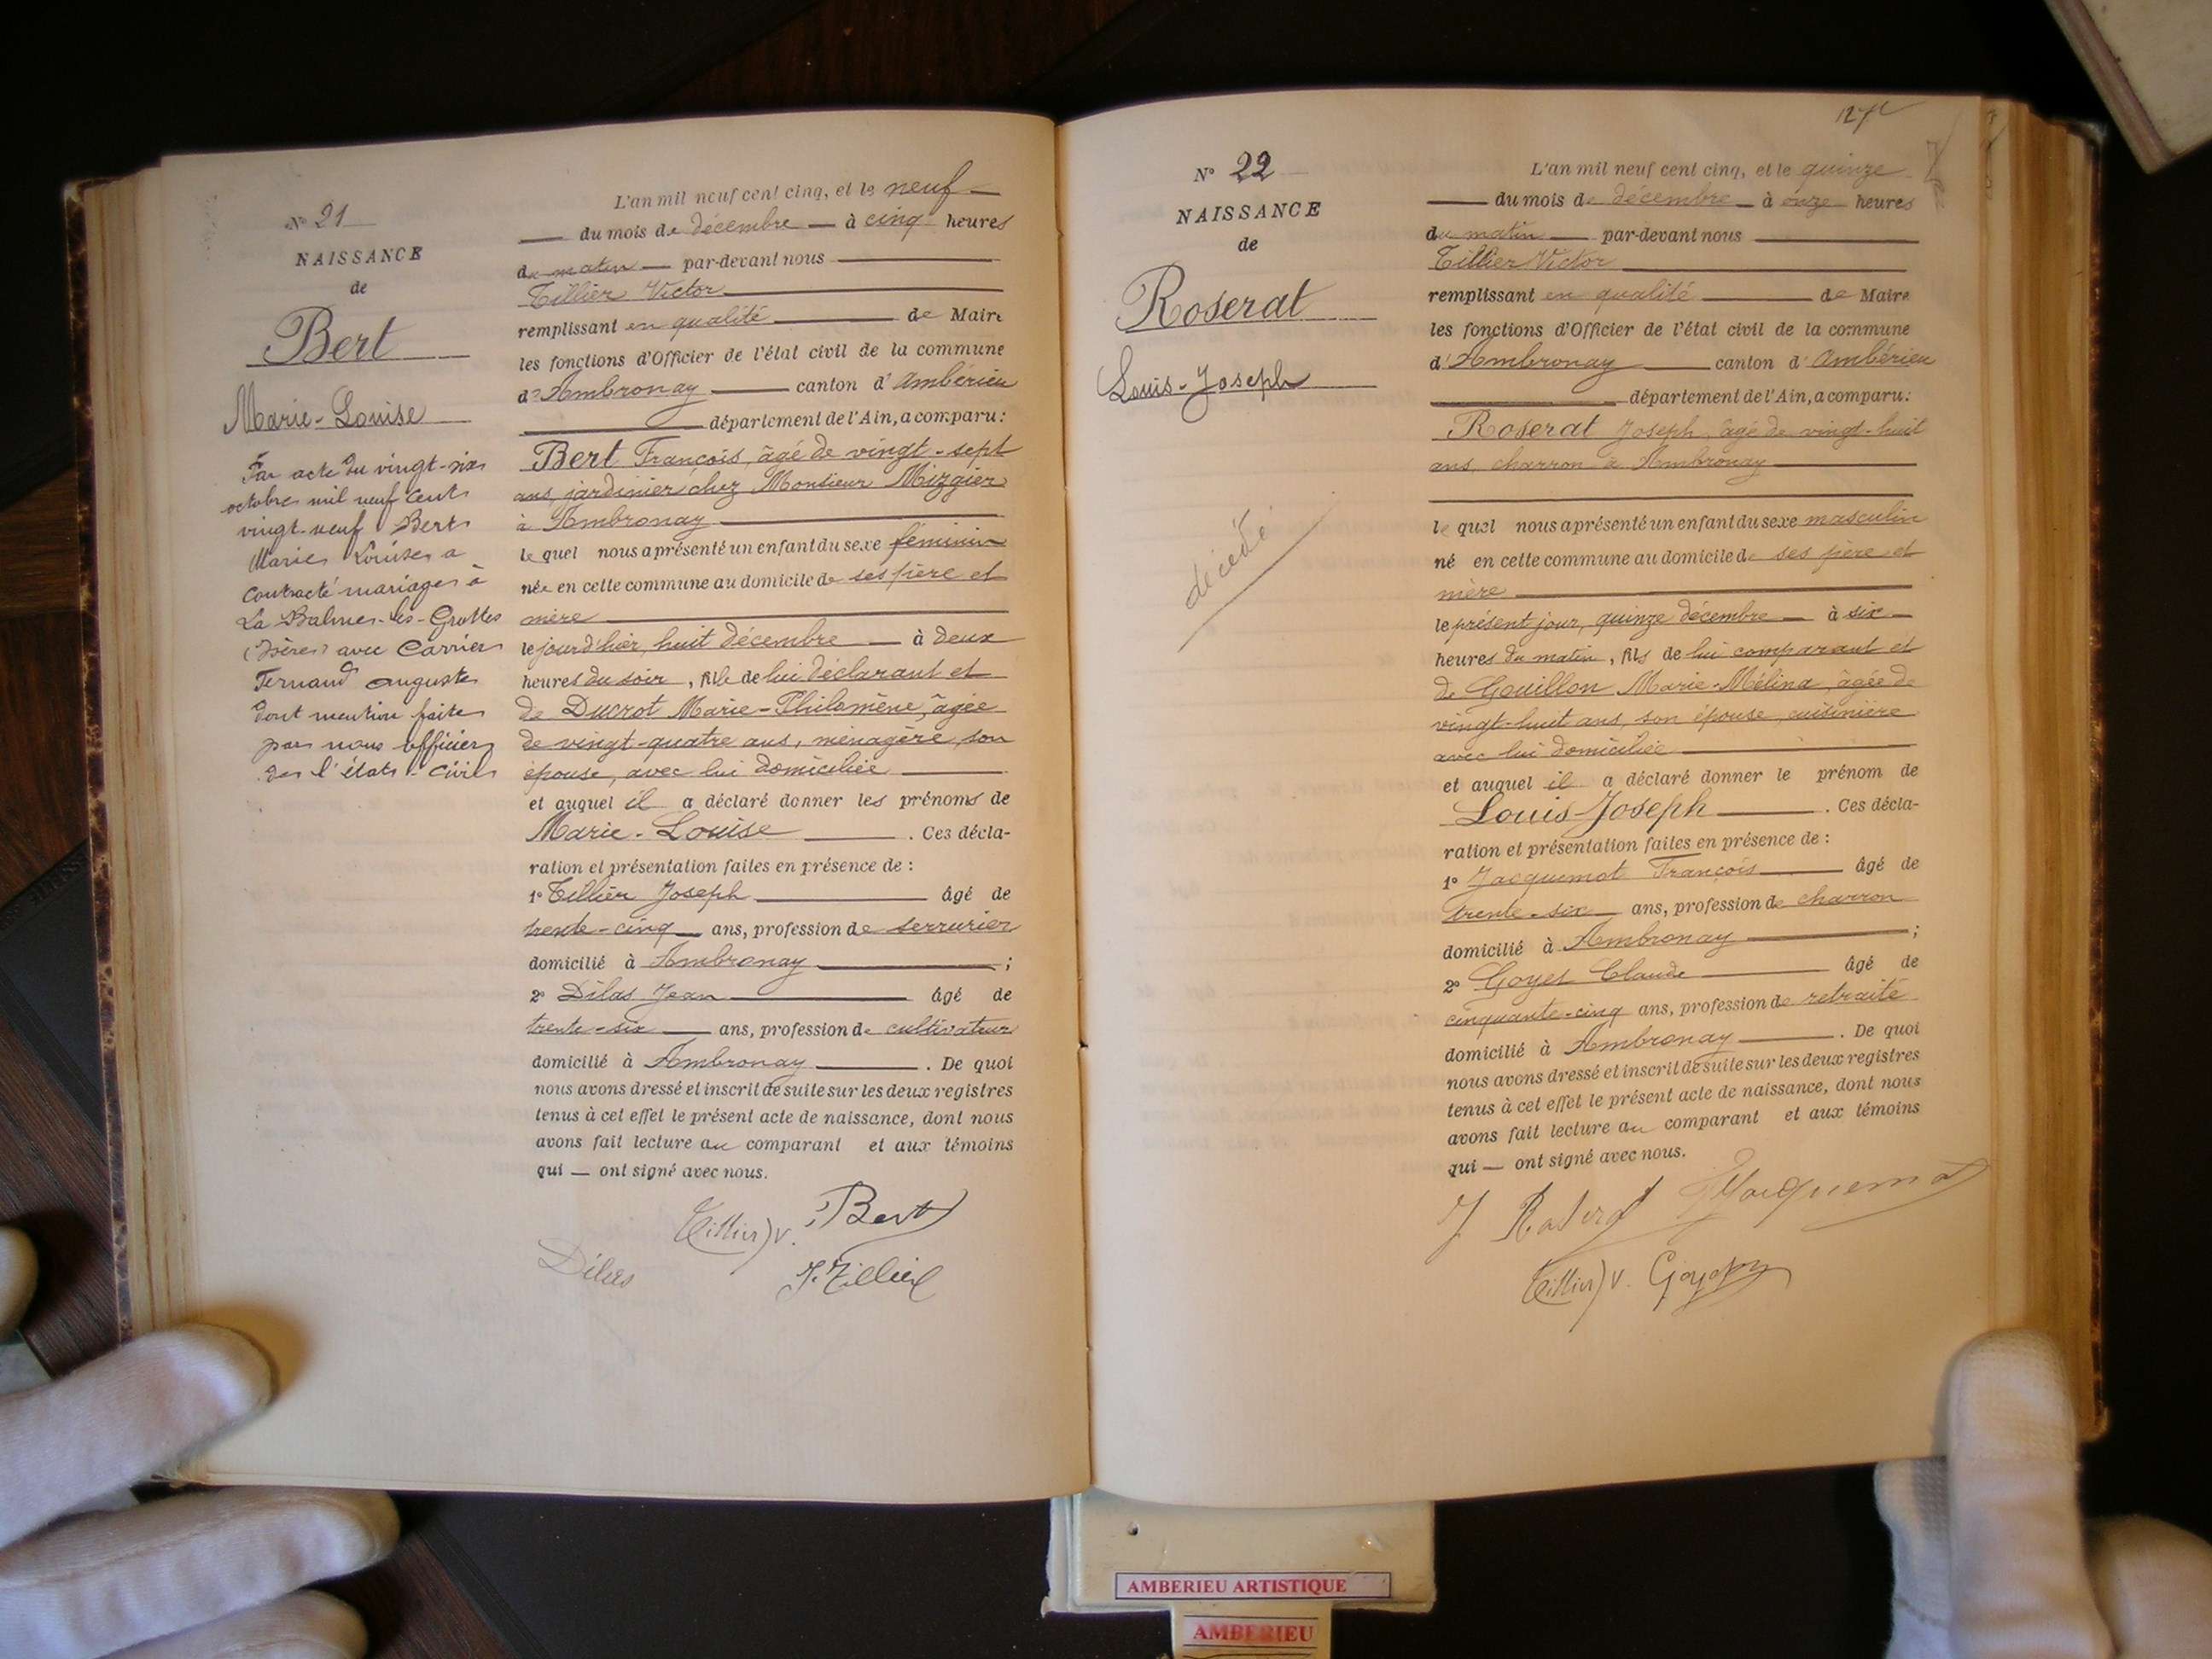 N° 21
NAISSANCE
de
Bert
Marie-Louise
Par acte du vingt-six
octobre mil neuf cent
vingt-neuf Bert
Marie Louise a
contracté mariage à
La Balme-les-Grottes
(Isère) avec Carrier
Fernand Auguste
dont mention faite
par nous officier
de l'état-civil
L'an mil neuf cent cinq, et le neuf
du mois de décembre à cinq heures
du matin par-devant nous
Tillier Victor
remplissant en qualité de Maire
les fonctions d'Officier de l'état civil de la commune
d'Ambronay canton d'Ambérieu
département de l'Ain, a comparu :
Bert François, âgé de vingt-sept
ans, jardinier chez Monsieur Mizgier
à Ambronay
lequel nous a présenté un enfant du sexe féminin
née en cette commune au domicile de ses père et
mère
le jourd'hier, huit décembre à deux
heures du soir, fille de lui déclarant et
de Ducrot Marie-Philomène, âgée
de vingt-quatre ans, ménagère, son
épouse, avec lui domiciliée
et auquel il a déclaré donner les prénoms de
Marie-Louise . Ces décla-
ration et présentation faites en présence de :
1° Tillier Joseph âgé de
trente-cinq ans, profession de serrurier
domicilié à Ambronay ;
2° Dilas Jean âgé de
trente-six ans, profession de cultivateur
domicilié à Ambronay . De quoi
nous avons dressé et inscrit de suite sur les deux registres
tenus à cet effet le présent acte de naissance, dont nous
avons fait lecture au comparant et aux témoins
qui — ont signé avec nous.
Tillier V. Bert
Dilas J. Tillier
127
N° 22
NAISSANCE
de
Roserat
Louis-Joseph
décédé
L'an mil neuf cent cinq, et le quinze
du mois de décembre à onze heures
du matin par-devant nous
Tillier Victor
remplissant en qualité de Maire
les fonctions d'Officier de l'état civil de la commune
d'Ambronay canton d'Ambérieu
département de l'Ain, a comparu :
Roserat Joseph, âgé de vingt-huit
ans, charron à Ambronay
lequel nous a présenté un enfant du sexe masculin
né en cette commune au domicile de ses père et
mère
le présent jour, quinze décembre à six
heures du matin, fils de lui comparant et
de Gouillon Marie-Mélina, âgée de
vingt-huit ans, son épouse, cuisinière
avec lui domiciliée
et auquel il a déclaré donner le prénom de
Louis-Joseph . Ces décla-
ration et présentation faites en présence de :
1° Jacquemot François âgé de
trente-six ans, profession de charron
domicilié à Ambronay ;
2° Goyet Claude âgé de
cinquante-cinq ans, profession de retraité
domicilié à Ambronay . De quoi
nous avons dressé et inscrit de suite sur les deux registres
tenus à cet effet le présent acte de naissance, dont nous
avons fait lecture au comparant et aux témoins
qui — ont signé avec nous.
J Roserat Jacquemot
Tillier V. Goyet
AMBERIEU ARTISTIQUE
AMBERIEU